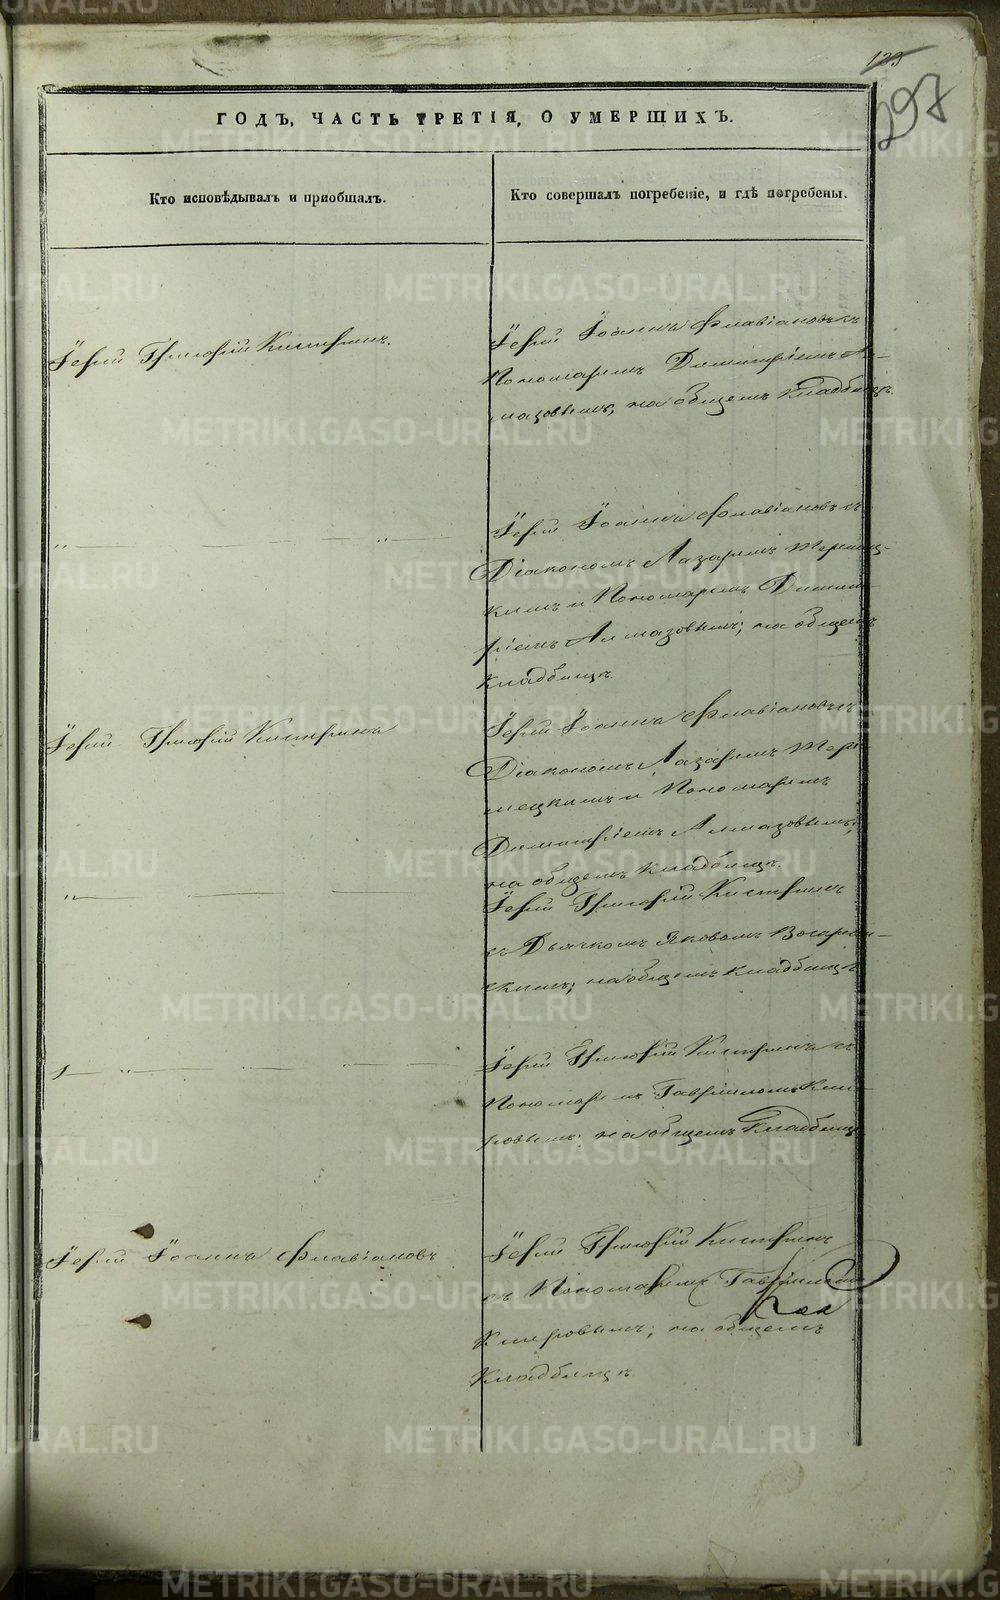 123
297
ГОДЪ, ЧАСТЬ ТРЕТІЯ, О УМЕРШИХЪ.
Кто исповѣдывалъ и пріобщалъ.
Кто совершалъ погребеніе, и гдѣ погребены.
Іерей Григорій Кистринъ.
Іерей Іоаннъ Флавіановъ съ
Пономаремъ Димитріемъ Ал-
мазовымъ, на общемъ кладбищѣ.
Іерей Іоаннъ Флавіановъ съ
Діакономъ Лазаремъ
кимъ и Пономаремъ Димит-
ріемъ Алмазовымъ; на общемъ
кладбищѣ.
Іерей Григорій Кистринъ
Іерей Іоаннъ Флавіановъ съ
Діакономъ Лазаремъ
и Пономаремъ
Димитріемъ Алмазовымъ;
на общемъ кладбищѣ.
Іерей Григорій Кистринъ
съ Дьячкомъ Яковомъ
кимъ; на общемъ кладбищѣ
Іерей Григорій Кистринъ съ
Пономаремъ Гавріиломъ Ки-
ровымъ; на общемъ кладбищѣ
Іерей Іоаннъ Флавіановъ
Іерей Григорій Кистринъ
съ Пономаремъ Гавріиломъ
Кировымъ; на общемъ
кладбищѣ.
METRIKI.GASO-URAL.RU